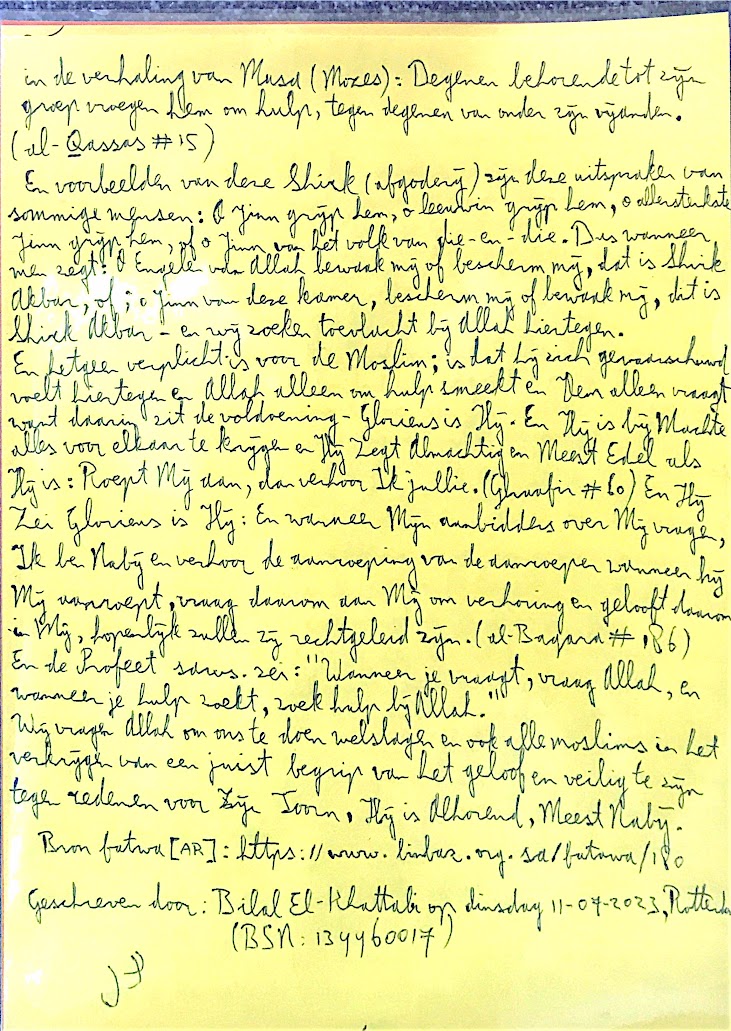 in de verhaling van Musa (Mozes): Degenen behorende tot zijn
groep vroegen hem om hulp, tegen degenen van onder zijn vijanden.
(al-Qassas #15)
En voorbeelden van deze Shirk (afgoderij) zijn deze uitspraken van
sommige mensen: O Jinn grijp hem, o leeuwin grijp hem, o allersterkste
Jinn grijp hem, of o Jinn van het volk van die-en-die. Dus wanneer
men zegt: O Engelen van Allah bewaak mij of bescherm mij, dat is Shirk
Akbar, of; o Jinn van deze kamer, bescherm mij of bewaak mij, dit is
Shirk Akbar - en wij zoeken toevlucht bij Allah hiertegen.
En hetgeen verplicht is voor de Moslim; is dat hij zich gewaarschuwd
voelt hiertegen en Allah alleen om hulp smeekt en Hem alleen vraagt
want daarin zit de voldoening - Glorieus is Hij. En Hij is bij Machte
alles voor elkaar te krijgen en Hij Zegt Almachtig en Meest Edel als
Hij is: Roept Mij aan, dan verhoor Ik jullie. (Ghaafir #60) En Hij
Zei Glorieus is Hij: En wanneer Mijn aanbidders over Mij vragen,
Ik ben Nabij en verhoor de aanroeping van de aanroeper wanneer hij
Mij aanroept, vraag daarom aan Mij om verhoring en gelooft daarom
in Mij, hopenlijk zullen zij rechtgeleid zijn. (al-Baqara #186)
En de Profeet saws. zei: "Wanneer je vraagt, vraag Allah, en
wanneer je hulp zoekt, zoek hulp bij Allah."
Wij vragen Allah om ons te doen welslagen en ook alle moslims in het
verkrijgen van een juist begrip van het geloof en veilig te zijn
tegen redenen voor Zijn Toorn, Hij is Alhorend, Meest Nabij.
Bron fatwa [AR]: https://www.binbaz.org.sa/fatawa/180
Geschreven door: Bilal El-Khattabi op dinsdag 11-07-2023, Rotterda
(BSN: 134460017)